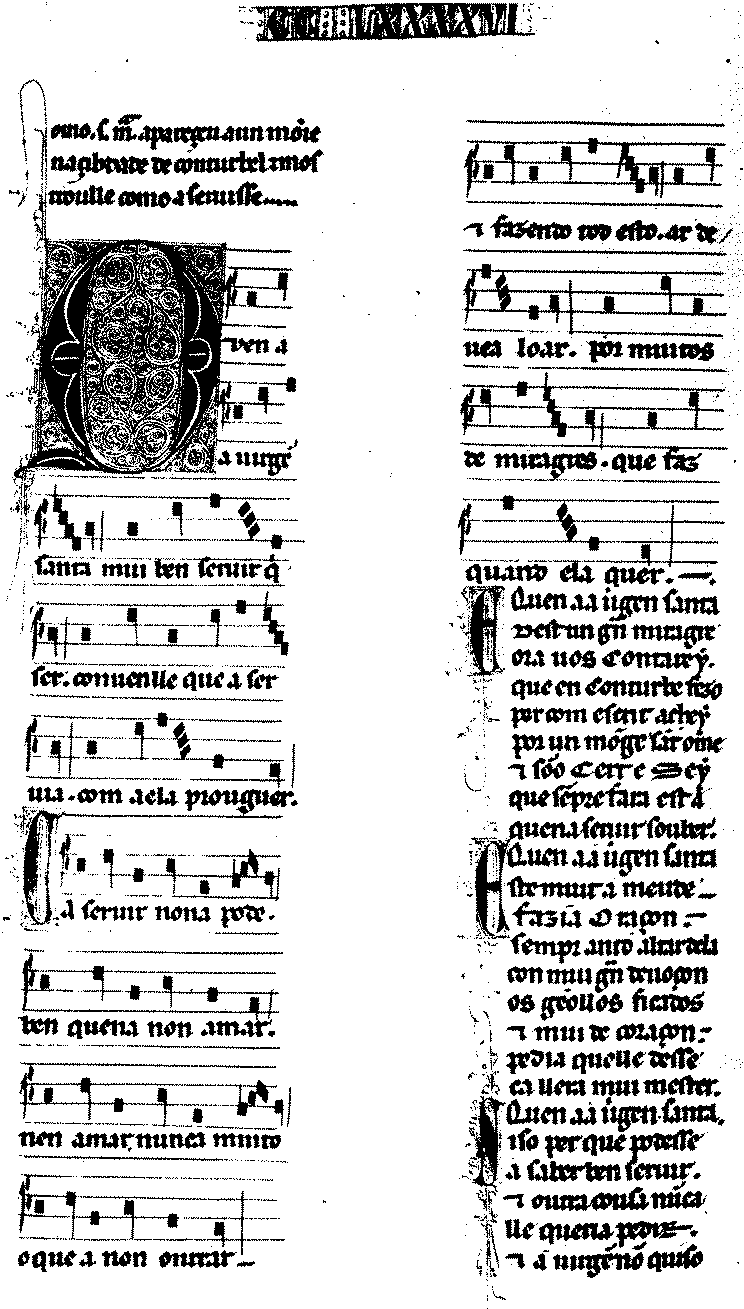 CCLXXXXVI
omo. S. M. apareçeu a un monie
na abbadia de conturbel. τ mos
troulle como a seruisse.
Quen a
a uirgẽ
santa mui ben seruir q̃
ser. conuenlle que a ser
uia. com a ela prouguer.
E a seruir nona pode.
ben quena non amar.
nen amar nunca muito
o que a non onrrar
τ fazendo tod esto. ar de
uea loar. por muitos
de miragres. que faz
quando ela quer.
Quen a a uirgen santa
E dest un gñ miragre
ora uos Contarey.
que en Conturbe fezo
per com escrit achey
por un mõge sãt ome
τ sõo Certe Sey
que sẽpre fara est a
quen a seruir souber.
Quen a a uirgen santa
Este muit a meude
fazia Oraçon.
sempr anto altar dela
con mui gñ deuoçon
os gẽollos ficados
τ mui de coraçon
pedia quelle desse
ca llera mui mester.
Quen a a uirgen santa.
Aiso per que podesse
a saber ben seruir.
τ outra cousa nũca
lle queria pedir.
τ a uirgẽ nõ quiso